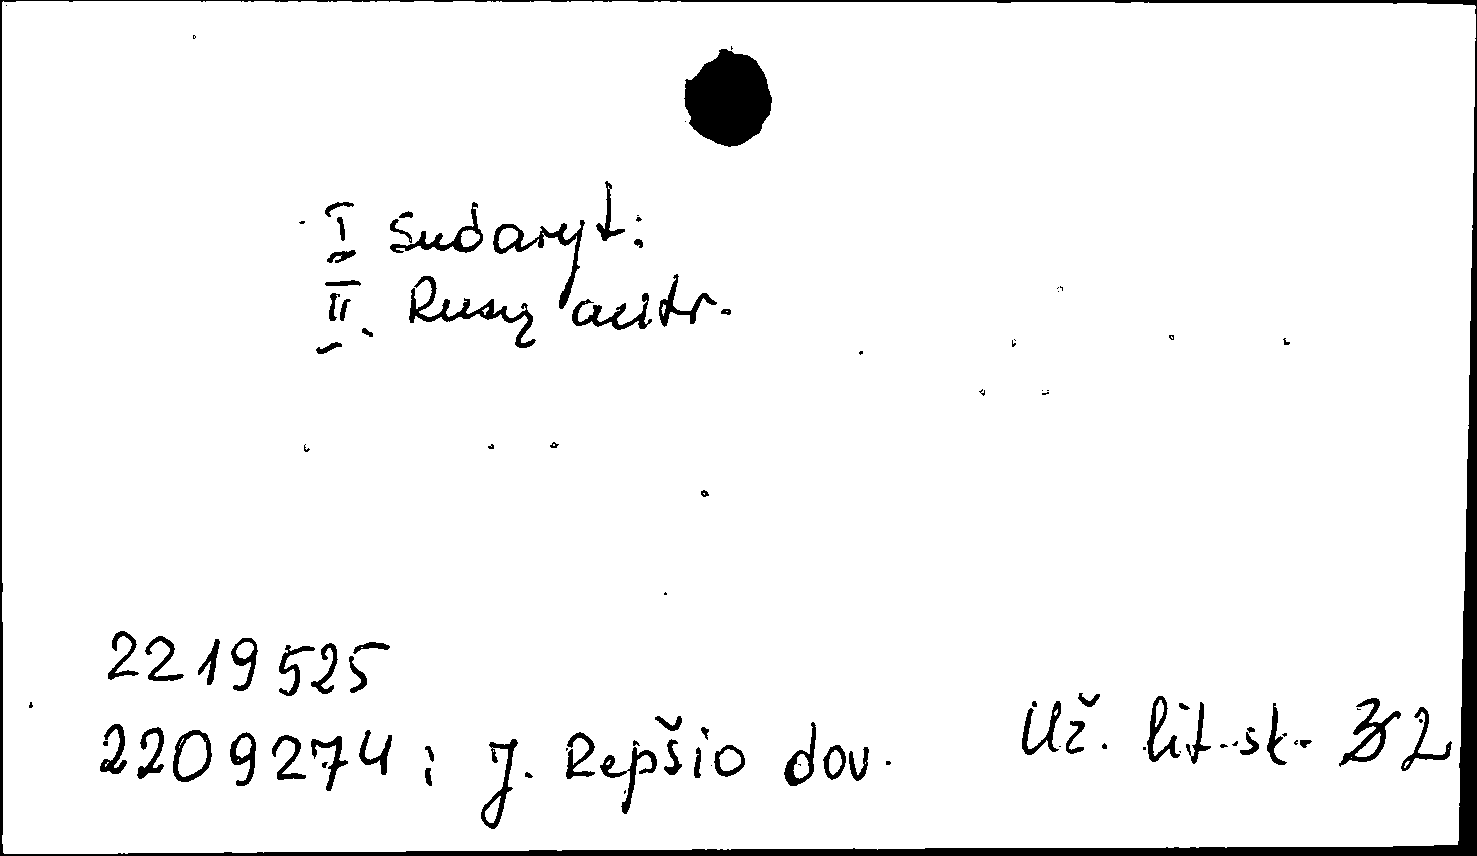 I Sudaryt:
II. Rusų antr.
2219525
2209274: J. Repšio dov.
Už. lit. sk. 2